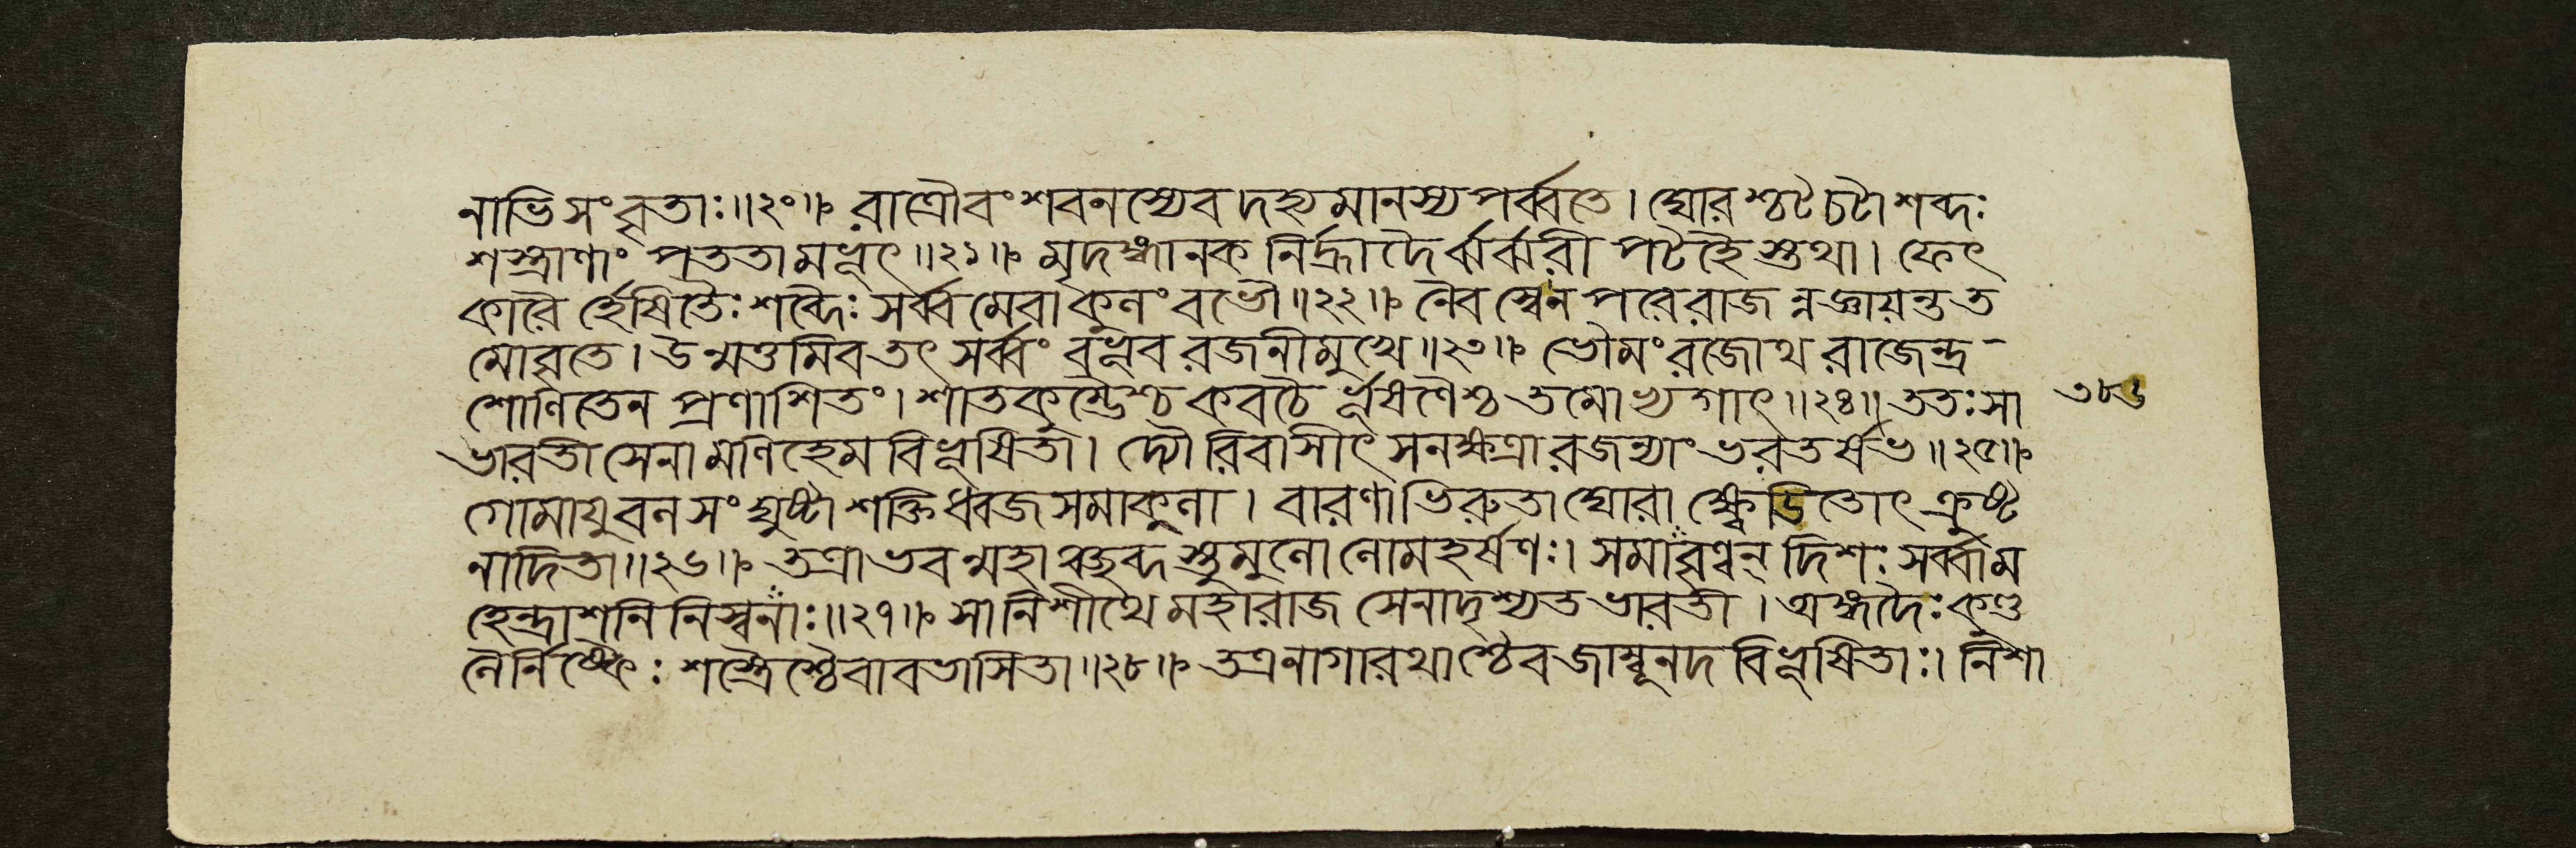 নাভিসংবৃতাঃ॥২০॥ রাত্রৌবংশবনস্যেবদহ্যমানস্যপর্ব্বতে। ঘোরশ্চটচটাশব্দঃ
শস্ত্রাণাং পততামভূৎ॥২১॥ মৃদঙ্গানকনির্হ্রাদৈর্ঝর্ঝরীপটহৈস্তথা। ফেৎ
কারৈর্হেষিতৈঃশব্দৈঃসর্ব্বমেবাকুলংবভৌ॥২২॥ নৈবস্বেনপরেরাজন্নজ্ঞায়ন্তত
মোবৃতে। উন্মত্তমিবতৎসর্ব্বং বভূবরজনীমুখে॥২৩॥ ভৌমংরজোথরাজেন্দ্র
শোণিতেনপ্রণাশিতং। শাতকুম্ভৈশ্চকবচৈর্ভূষণৈশ্চতমোভ্যগাৎ॥২৪॥ততঃসা
৩৮৬
ভারতীসেনামণিহেমবিভূষিতা। দ্যৌরিবাসীৎসনক্ষত্রারজন্যাংভরতর্ষভ॥২৫॥
গোমায়ুবলসংঘুষ্টাশক্তিধ্বজসমাকুলা। বারণাভিরুতাঘোরাক্ষ্বেডিতোৎক্রুষ্ট
নাদিতা॥২৬॥ তত্রাভবন্মহাঞ্ছব্দস্তুমুলোলোমহর্ষণঃ। সমাবৃণ্বন্দিশঃসর্ব্বাম
হেন্দ্রাশনিনিস্বনাঃ॥২৭॥ সানিশীথেমহারাজসেনাদৃশ্যতভারতী। অঙ্গদৈঃকুণ্ড
লৈর্নিষ্কৈঃশস্ত্রৈশ্চৈবাবভাসিতা॥২৮॥ তত্রনাগারথাশ্চৈবজাম্বূনদবিভূষিতাঃ। নিশা